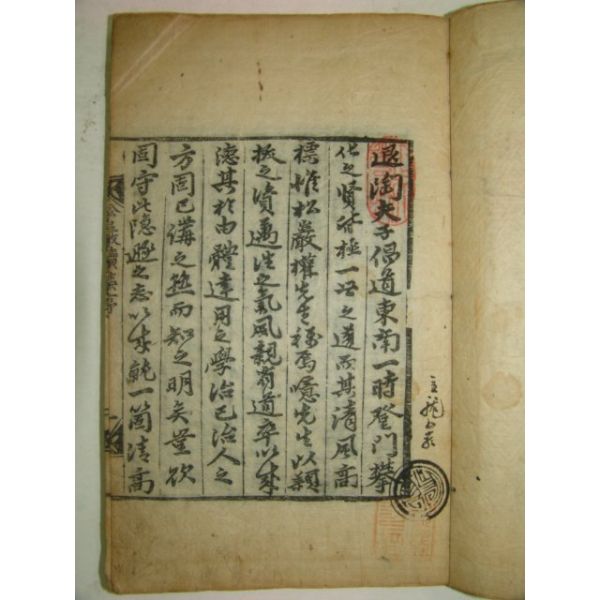 退陶夫子倡道東南一時登門攀
化之賢皆極一世之選而其清風高
標惟松巖權先生稱焉噫先生以穎
拔之資邁往之氣夙親有道卒以成
德其於由體達用之學治己治人之
方固已講之熟而知之明矣豈欲
固守此隱遯之志以成就一箇清高